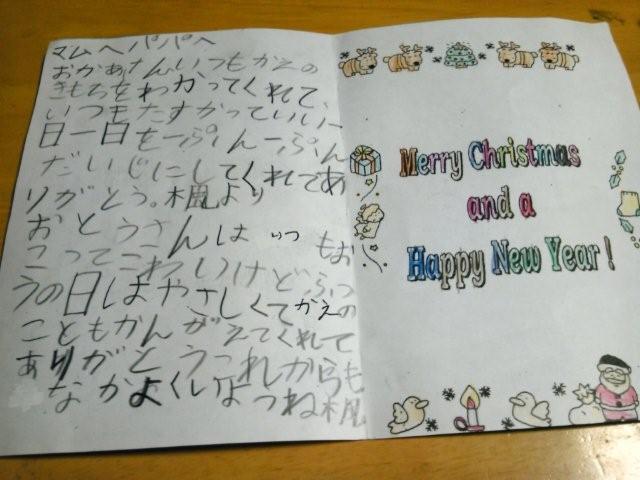 マムへパパへ
おかあさんいつもかえの
きもちをわかってくれて、
いつもたすかっていい
日一日を一ぷん一ぷん
だいじにしてくれてあ
りがとう。楓より
おとうさんは いつ もお
こってこわいけどふつ
うの日はやさしくてかえの
こともかんがえてくれて
ありがとうこれからも
なかよくしよつね楓
Merry Christmas
and a
Happy New Year!